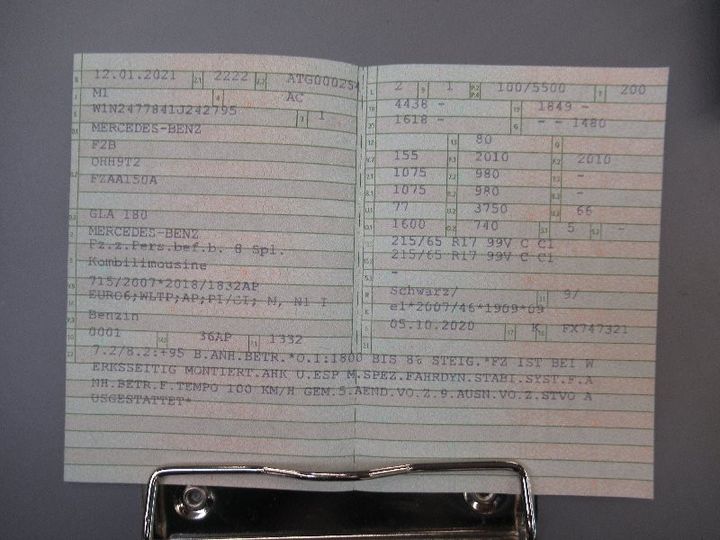 12.01.2021 2222 ATG000254
M1 AC
W1N2477841J242795 1
MERCEDES-BENZ
F2B
OHH9T2
FZAA150A
GLA 180
MERCEDES-BENZ
Fz.z.Pers.bef.b. 8 Spl.
Kombilimousine
715/2007*2018/1832AP
EURO6;WLTP;AP;PI/CI; M, N1 I
Benzin
0001 36AP 1332
2 1 100/5500 200
4438 - 1849 -
1618 - - - 1480
80
155 2010 2010
1075 980 -
1075 980 -
77 3750 66
1600 740 5 -
215/65 R17 99V C C1
215/65 R17 99V C C1
-
Schwarz/ 9/
e1*2007/46*1909*09
05.10.2020 K FX747321
7.2/8.2:+95 B.ANH.BETR.*O.1:1800 BIS 8% STEIG.*FZ IST BEI W
ERKSSEITIG MONTIERT.AHK U.ESP M.SPEZ.FAHRDYN.STABI.SYST.F.A
NH.BETR.F.TEMPO 100 KM/H GEM.5.AEND.VO.Z.9.AUSN.VO.Z.STVO A
USGESTATTET*